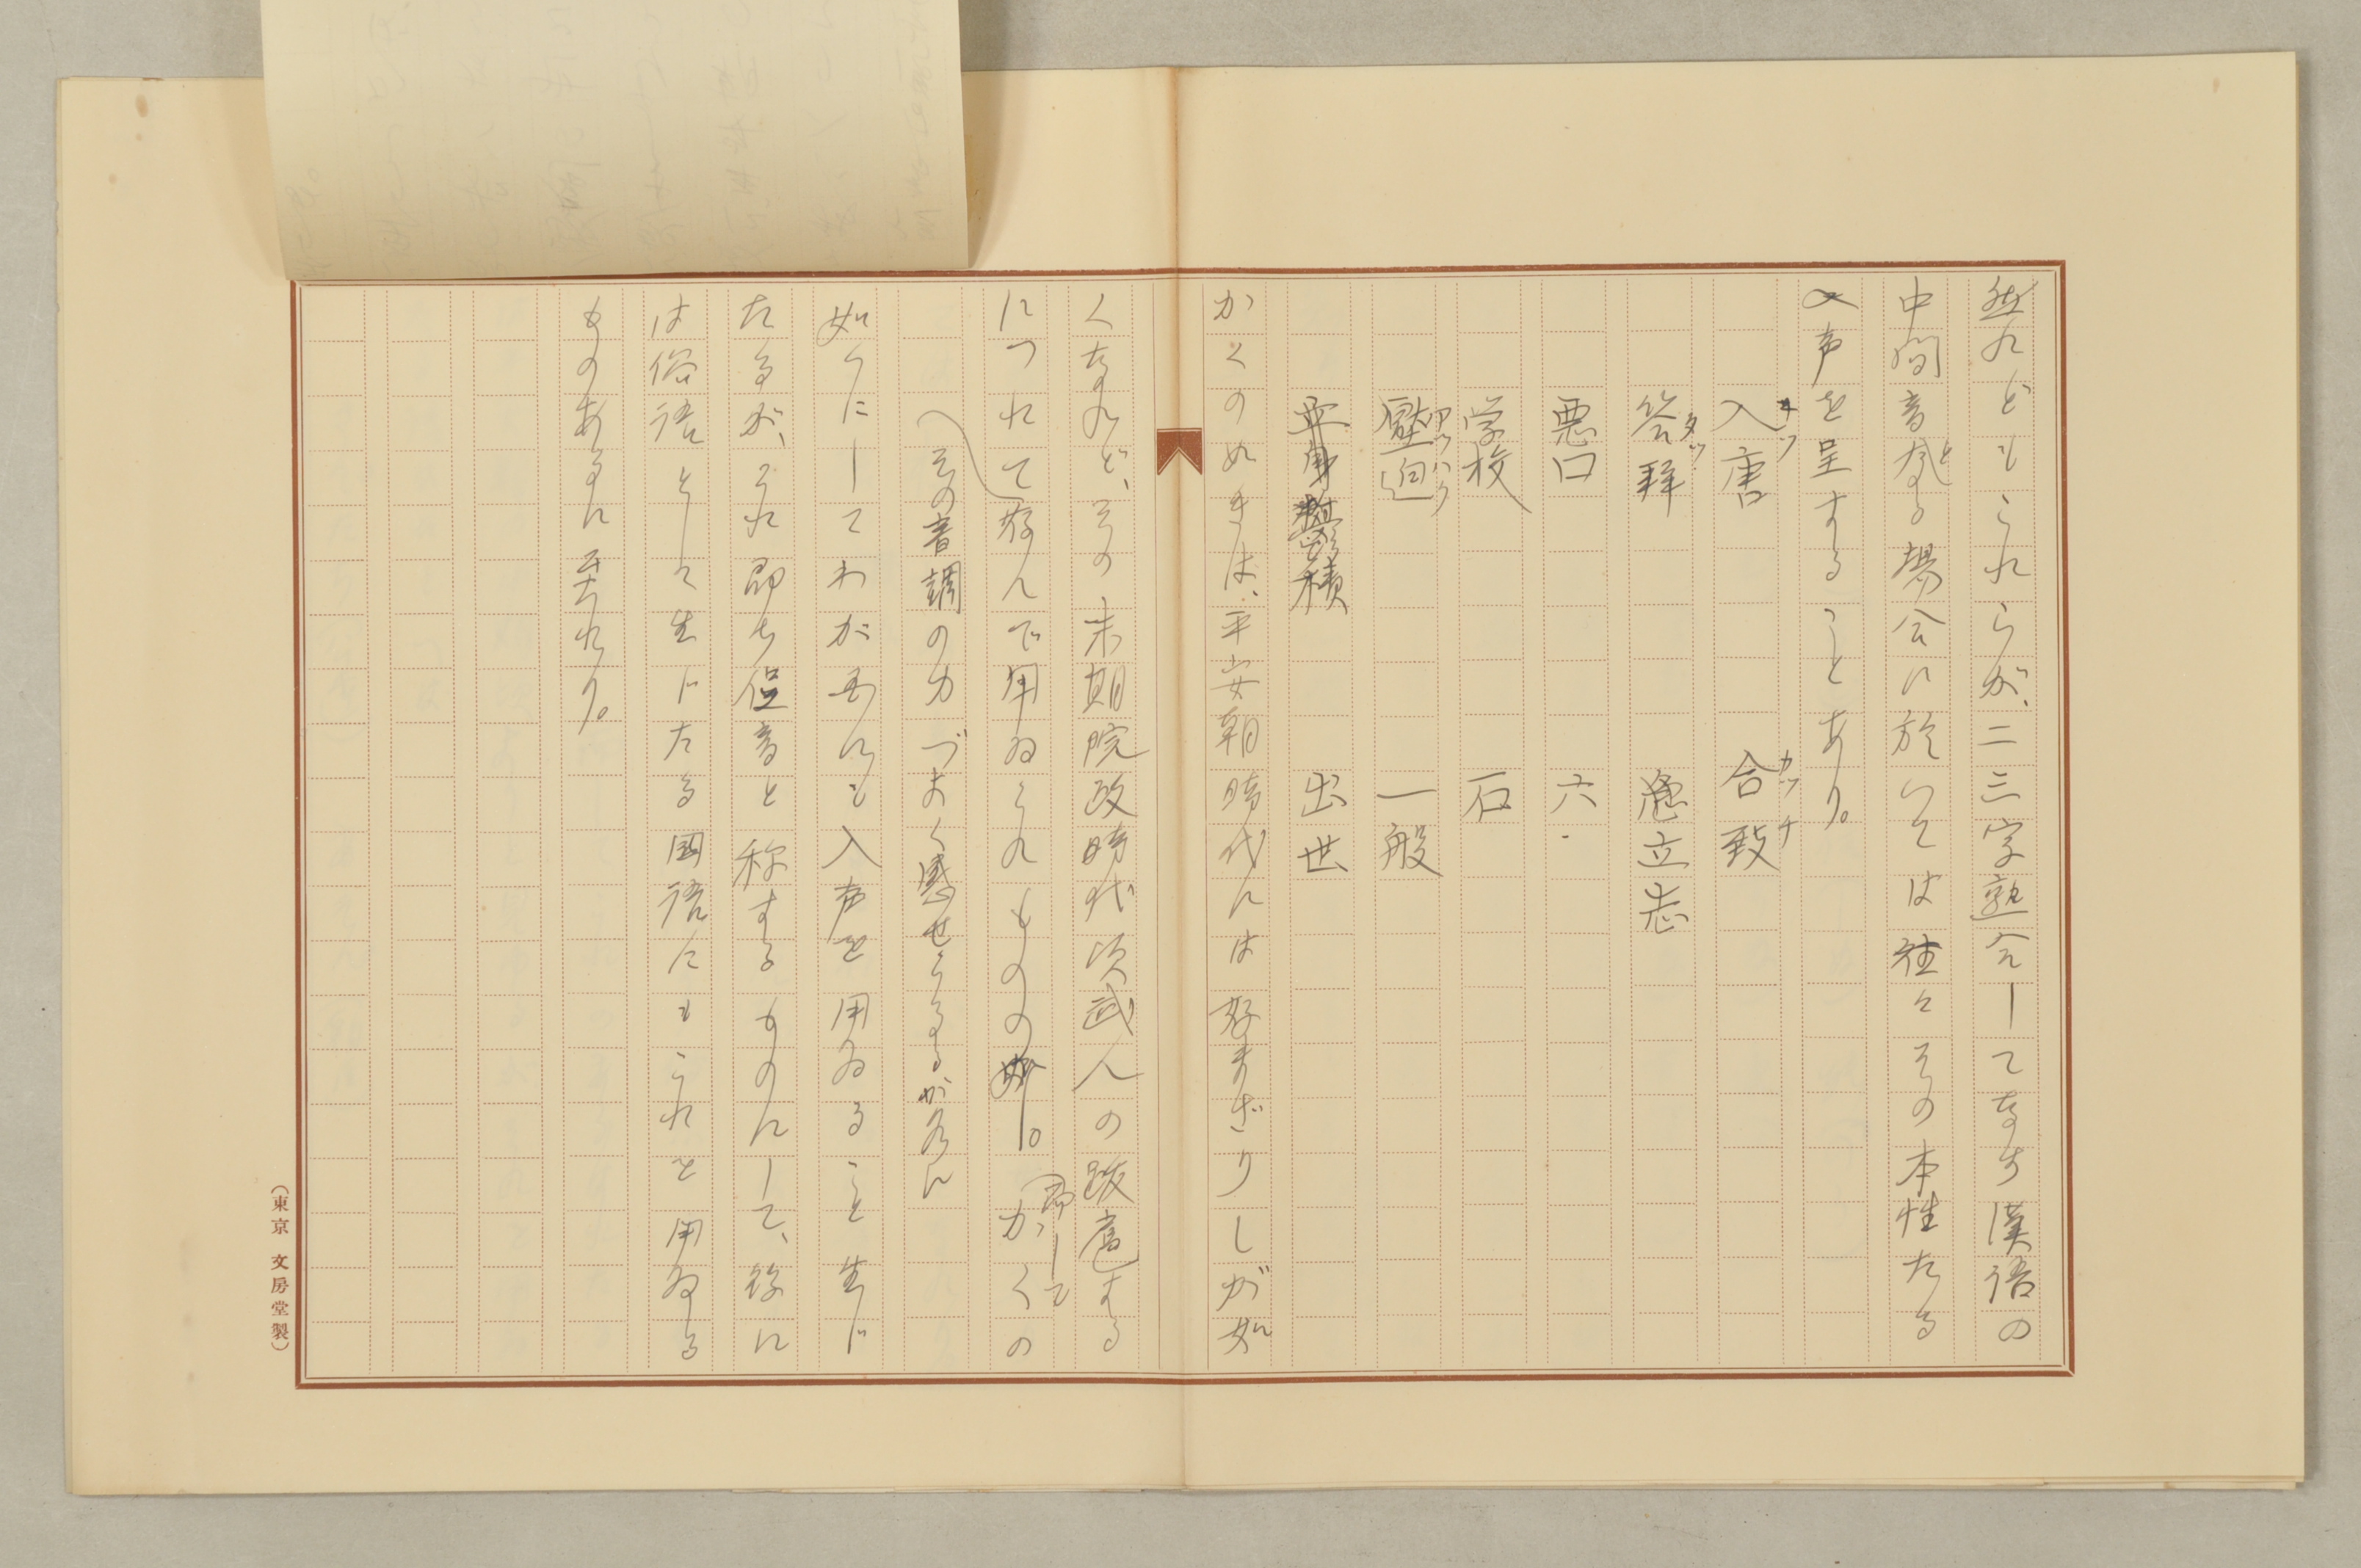 然れどもこれらが、二三字熟合してなす漢語の
中間音となる場合に於いては往々その本性たる
入声を呈することあり。
入唐 合致 カッチ
答拝 タッ 急立志
悪口 六
学校 石
壓迫 アツパク 一般
鬱積 出世
かくのぬきは、平安朝時代には好まざりしが如
くなれど、その末期院政時代頃武人の跋扈する
につれて好んで用ゐられものの如し。即して かくの
その音調の力づよく感せらるるが為に
如くにしてわが国にも入声を用ゐること生じ
たるが、これ即ち促音と称するものにして、後に
は俗語として生じたる國語にもこれを用ゐる
ものあるに至れり。
(東京 文房堂製)